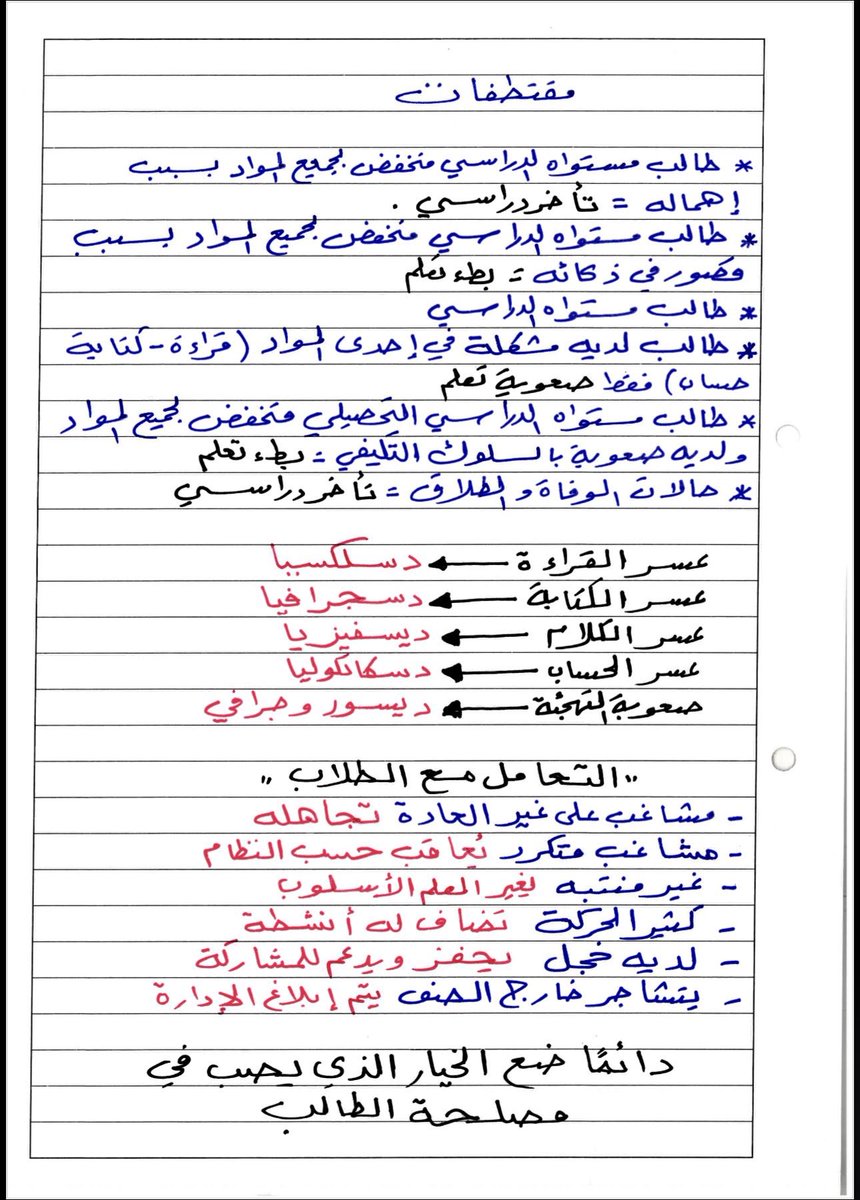 مقتطفات
* طالب مستواه الدراسي منخفض لجميع المواد بسبب
إهماله = تأخر دراسي .
* طالب مستواه الدراسي منخفض لجميع المواد بسبب
قصور في ذكائه = بطء تعلم
* طالب مستواه الدراسي
* طالب لديه مشكلة في إحدى المواد (قراءة - كتابة
حساب) فقط صعوبة تعلم
* طالب مستواه الدراسي التحصيلي منخفض لجميع المواد
ولديه صعوبة بالسلوك التكيفي = بطء تعلم
* حالات الوفاة و الطلاق = تأخر دراسي
عسر القراءة ← دسلكسيا
عسر الكتابة ← دسجرافيا
عسر الكلام ← ديسفيزيا
عسر الحساب ← دسكالكوليا
صعوبة التهجئة ← ديسوروجرافي
"التعامل مع الطلاب"
- مشاغب على غير العادة تجاهله
- مشاغب متكرر يُعاقب حسب النظام
- غير منتبه يغير المعلم الأسلوب
- كثير الحركة تضاف له أنشطة
- لديه خجل يحفز ويدعم للمشاركة
- يتشاجر خارج الصف يتم إبلاغ الإدارة
دائمًا ضع الخيار الذي يصب في
مصلحة الطالب